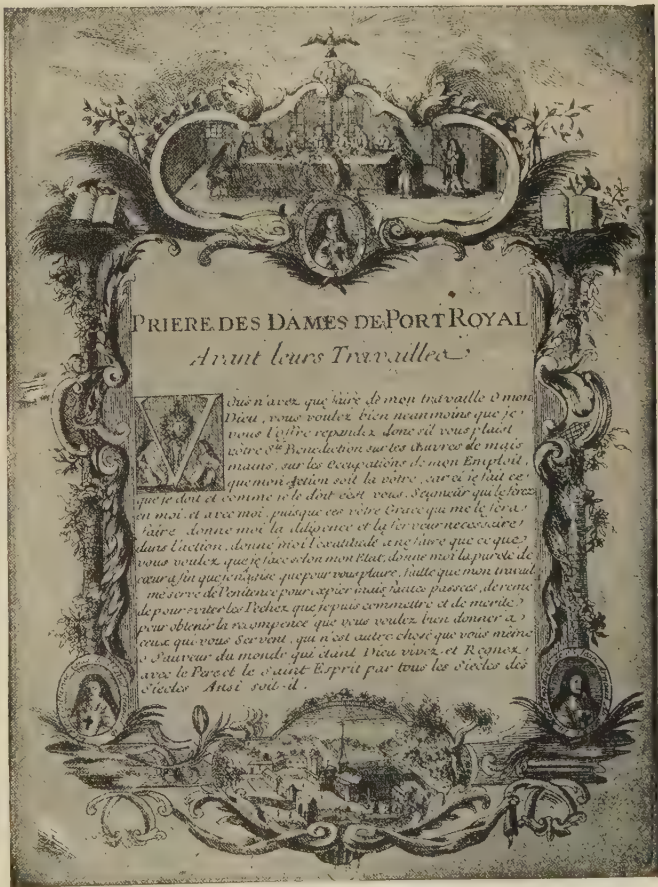 PRIERE DES DAMES DE PORT ROYAL
Avant leurs Travailles
Vous n'avez que faire de mon travaille O mon
Dieu, vous voulez bien neanmoins que je
vous l'offre repandez donc s'il vous plaist
vôtre Ste Benediction sur les Œuvres de mais
mains, sur les Occupations de mon Emploit,
que mon Action soit la vôtre, car ci je fait ce
que je doit et comme je le doit c'est vous, Seigneur qui le ferez
en moi, et avec moi, puisque ces vôtre Grace qui me le fera
faire, donne moi la diligence et la ferveur necessaire
dans l'action, donne moi l'exatitude a ne faire que ce que
vous voulez que je face selon mon Etat, donne moi la pureté de
cœur afin que je n'agisse que pour vous plaire, faitte que mon travail
me serve de Penitence pour expier mais fautes passées, de reme
de pour eviter les Pechez que je puis commettre et de merite
pour obtenir la recompence que vous voulez bien donner a
ceux qui vous Servent, qui n'est autre chose que vous meine
o Sauveur du monde qui étant Dieu vivez et Regnez
avec le Pere et le Saint Esprit par tous les Siecles des
Siecles Ansi soit-il.